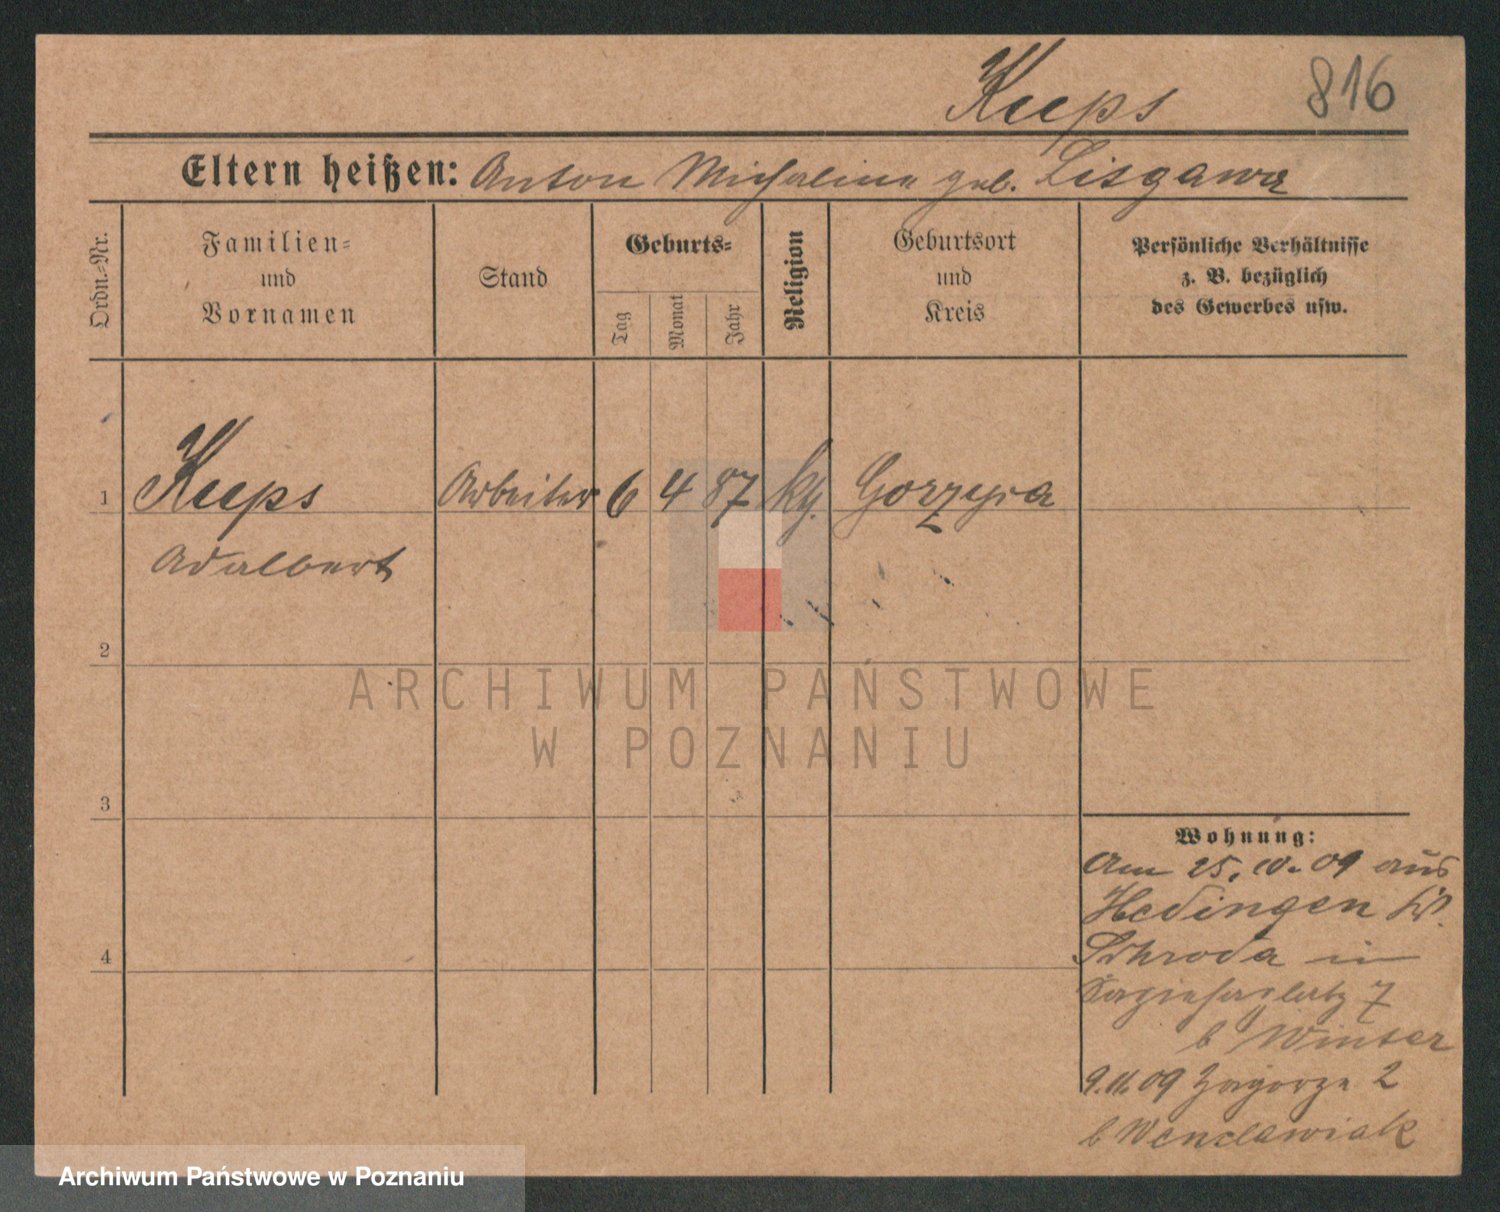 Keeps
816
Eltern heißen: Anton Michalina geb. Lisgawa
Ordn.-Nr.
Familien-
und
Vornamen
Stand
Geburts-
Tag
Monat
Jahr
Religion
Geburtsort
und
Kreis
Persönliche Verhältnisse
z. B. bezüglich
des Gewerbes usw.
1 Keeps Arbeiter 6 4 87 kth. Gorzyca
Adalbert
2
3
4
ARCHIWUM PAŃSTWOWE
W POZNANIU
Wohnung:
Am 25. 10. 09 aus
Hedingen Kr.
Schroda in
7
b Winter
9. 11. 09 Zagorze 2
b Wenclawiak
Archiwum Państwowe w Poznaniu